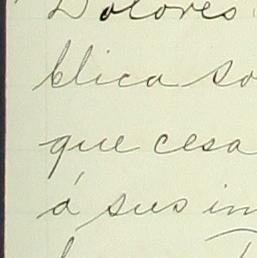 Dolores
blica so
que cesa
á sus im